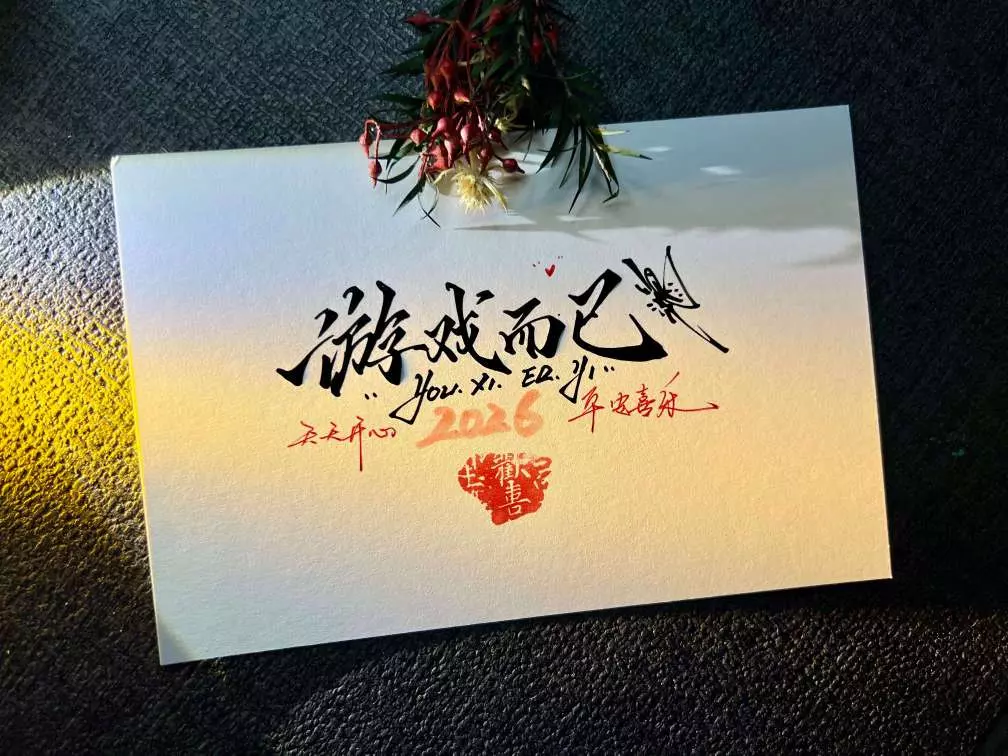 游戏而已
"YOU. XI. ER. YI"
天天开心 2026 平安喜乐
歡喜